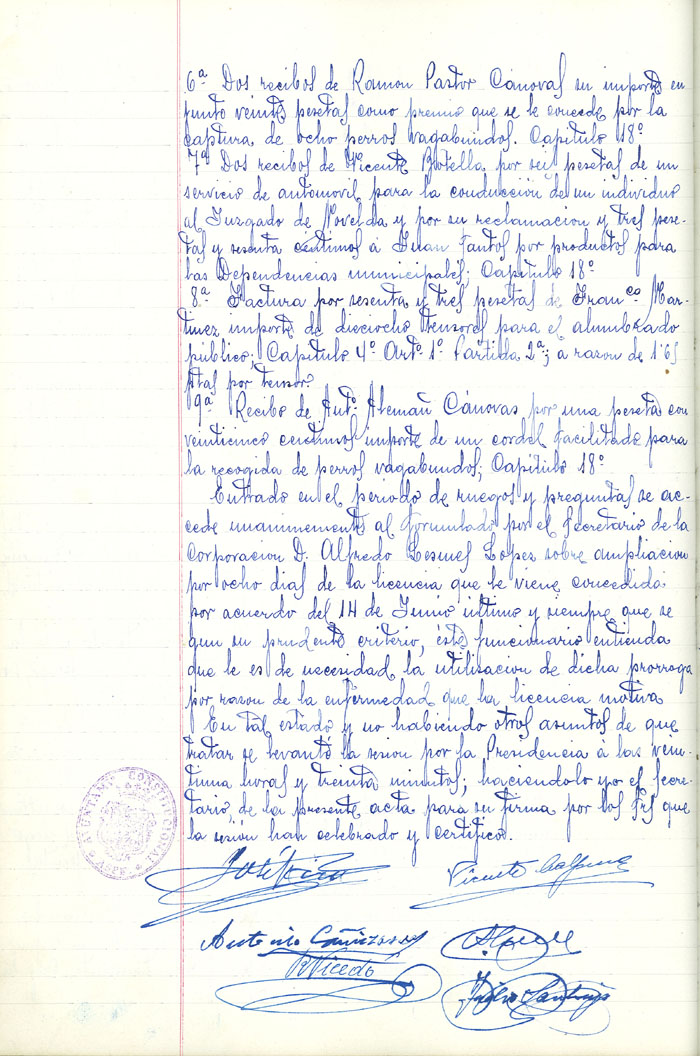 6ª Dos recibos de Ramon Pastor Cánovas su importe en
junto veinte pesetas como premio que se le concede por la
captura de ocho perros vagabundos. Capitulo 18º
7ª Dos recibos de Vicente Botella por seis pesetas de un
servicio de automovil para la conducción de un individuo
al Juzgado de Novelda y por su reclamacion y tres pese-
tas y sesenta centimos á Juan Santos por productos para
las Dependencias municipales; Capitulo 18º
8ª Factura por sesenta y tres pesetas de Franco Mar-
tinez importe de dieciocho tensores para el alumbrado
público; Capitulo 4º Artº 1º Partida 2ª; a razon de 1'65
ptas por tensor
9ª Recibo de Antº Alemañ Cánovas por una peseta con
veinticinco centimos importe de un cordel facilitado para
la recogida de perros vagabundos; Capitulo 18º
Entrado en el periodo de ruegos y preguntas se ac-
cede unanimemente al formulado por el Secretario de la
Corporacion D. Alfredo López sobre ampliacion
por ocho dias de la licencia que le viene concedida
por acuerdo del 14 de Junio último y siempre que se
gun su prudente criterio, éste funcionario entienda
que le es de necesidad la utilisacion de dicha prorroga
por razon de la enfermedad que la licencia motiva
En tal estado y no habiendo otros asuntos de que
tratar se levantó la sesion por la Presidencia á las vein-
tiuna horas y treinta minutos; haciendolo yo el Secre-
tario de la presente acta para su firma por los Srs que
la sesión han celebrado y certifico.
AYUNTAMTO CONSTITUCIONAL
ASPE
Vicente
Antonio Cañizares
R Vicedo